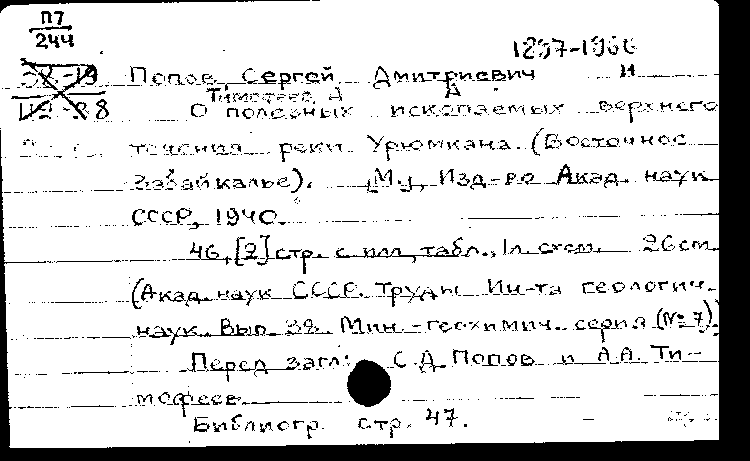 П7
244
1897-1966
38-19
Попов, Сергей Дмитриевич и
Тимофеев, А. А.
112-28
О полезных ископаемых верхнего
течения реки Урюмкана. (Восточное
Забайкалье). [М.], Изд-во Акад. наук
СССР, 1940.
46, [2] стр. с илл., табл., 1 л. схем. 26 см.
(Акад. наук СССР. Труды Ин-та геологич.
наук. Вып. 38. Мин.-геохимич. серия (№ 7).)
Перед загл.: С. Д. Попов и А. А. Ти-
мофеев.
Библиогр. стр. 47.